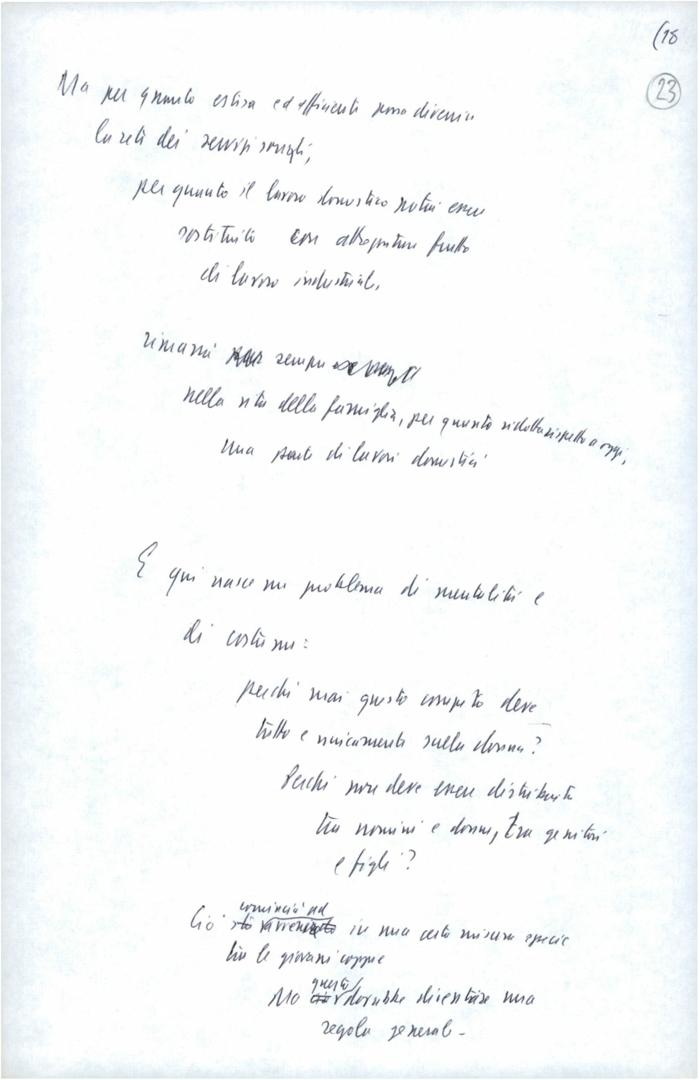 (18
23
Ma per quanto estesa ed efficiente possa divenire
la rete dei servizi sociali,
per quanto il lavoro domestico potrà essere
sostituito con attrezzature frutto
di lavoro industriale,
rimarrà sempre
nella vita della famiglia, per quanto ridotta rispetto a oggi,
una parte di lavori domestici
E qui nasce un problema di mentalità e
di costume:
perché mai questo compito deve
tutto e unicamente sulla donna?
Perché non deve essere distribuito
tra uomini e donne, tra genitori
e figli?
comincia ad
Ciò in una certa misura specie
tra le giovani coppie
questa
Ma dovrebbe diventare una
regola generale -